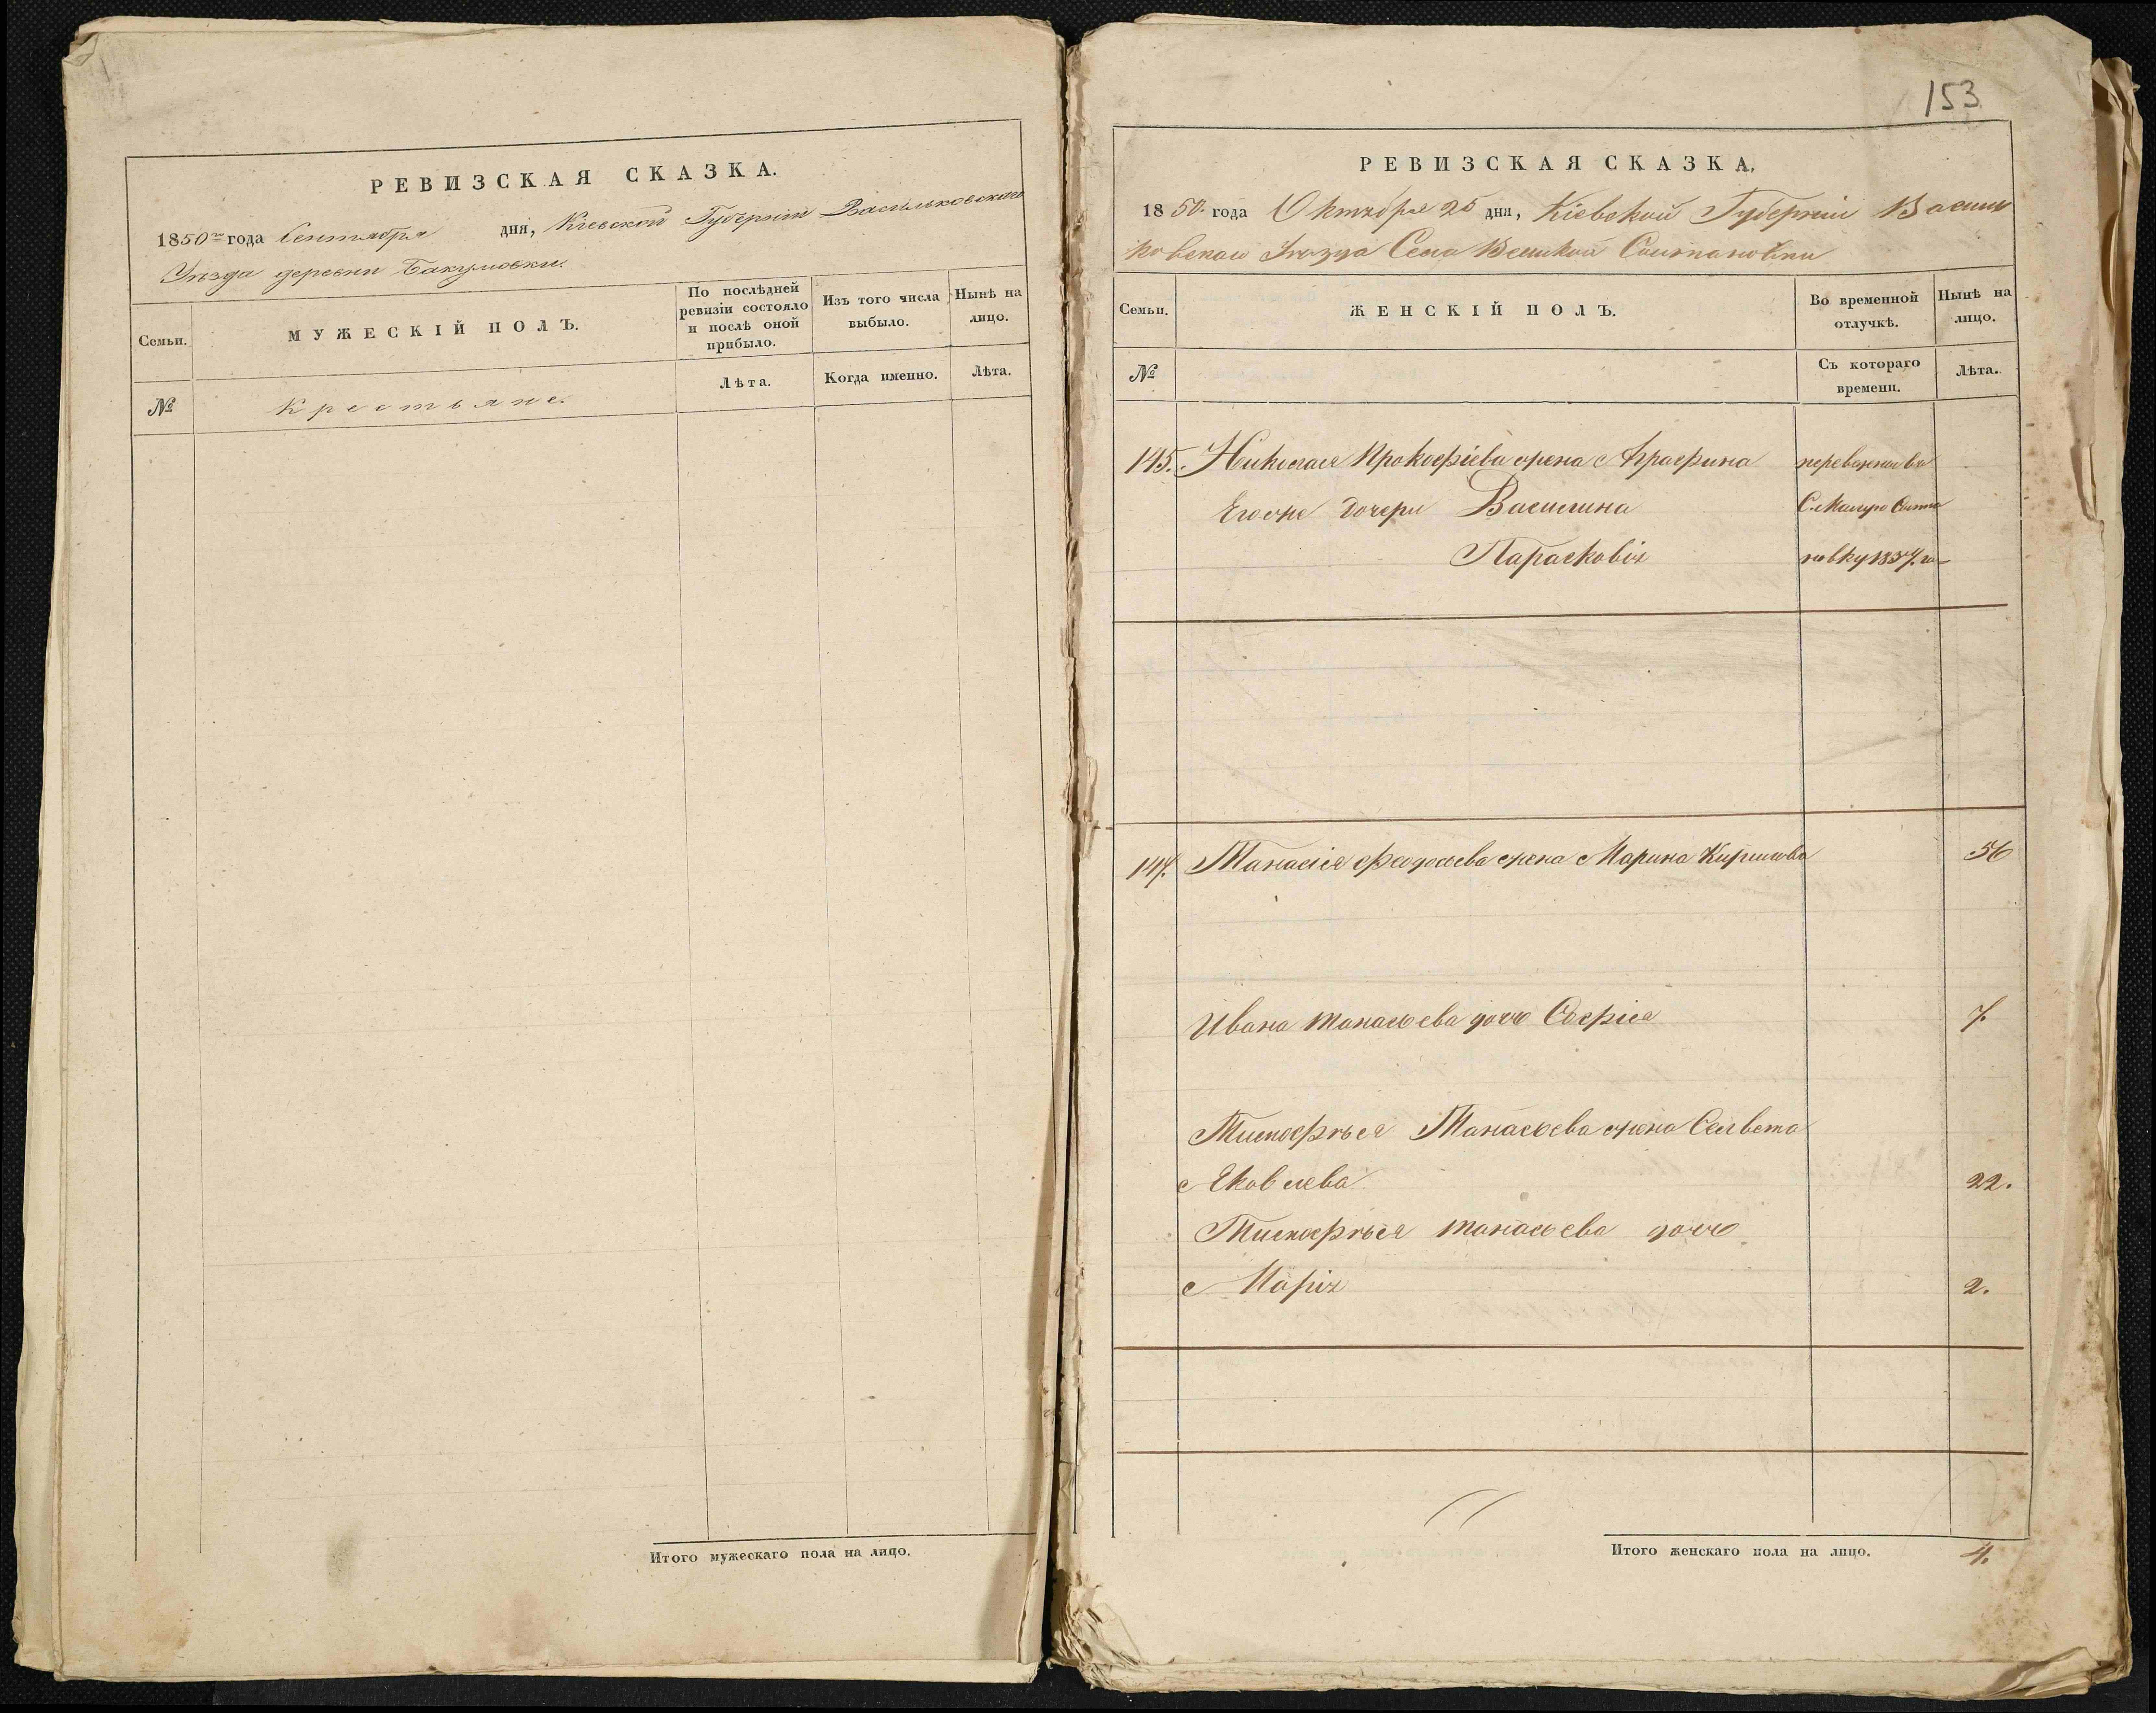 РЕВИЗСКАЯ СКАЗКА.
1850го года Сентября дня, Кіевской Губерніи Васильковскаго
Уѣзда деревни Бакумовки.
Семьи.
МУЖЕСКІЙ ПОЛЪ.
По послѣдней
ревизіи состояло
и послѣ оной
прибыло.
Изъ того числа
выбыло.
Нынѣ на
лицо.
№
Крестьяне.
Лѣта.
Когда именно.
Лѣта.
Итого мужескаго пола на лицо.
153
РЕВИЗСКАЯ СКАЗКА.
1850. года Октября 25 дня, Кіевской Губерніи Василь
ковскаго Уѣзда Села Великой Солтановки
Семьи.
ЖЕНСКІЙ ПОЛЪ.
Во временной
отлучкѣ.
Нынѣ на
лицо.
№
Съ котораго
времени.
Лѣта.
145. Николая Прокофіева жена Аграфина переведена въ
Егоже дочери Василина С. Малую Солта
Парасковія новку 1837. го
147. Танасія Федосѣева жена Марина Кирилова 56
Ивана Танасѣева дочь Софія 7.
Тимофтѣя Танасѣева жена Селвета
Яковлева 22.
Тимофтѣя Танасѣева дочь
Марія 2.
Итого женскаго пола на лицо. 4.